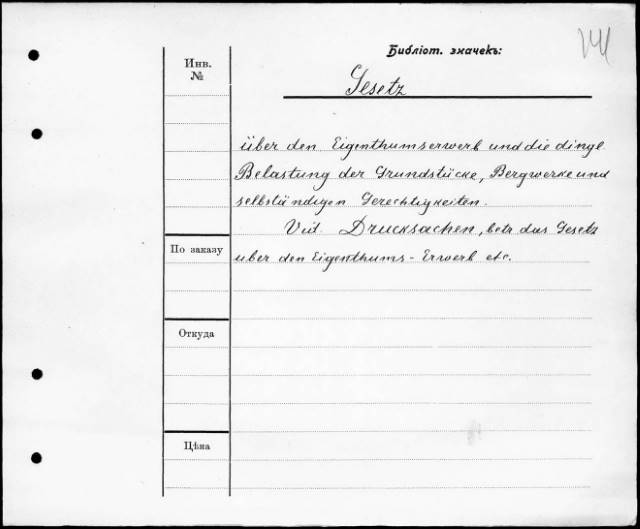 Библіот. значекъ:
Инв.
№
Gesetz
über den Eigenthumserwerb und die dingl.
Belastung der Grundstücke, Bergwerke und
selbständigen Gerechtigkeiten.
Vid. Drucksachen, betr. das Gesetz
über den Eigenthums-Erwerb etc.
По заказу
Откуда
Цѣна